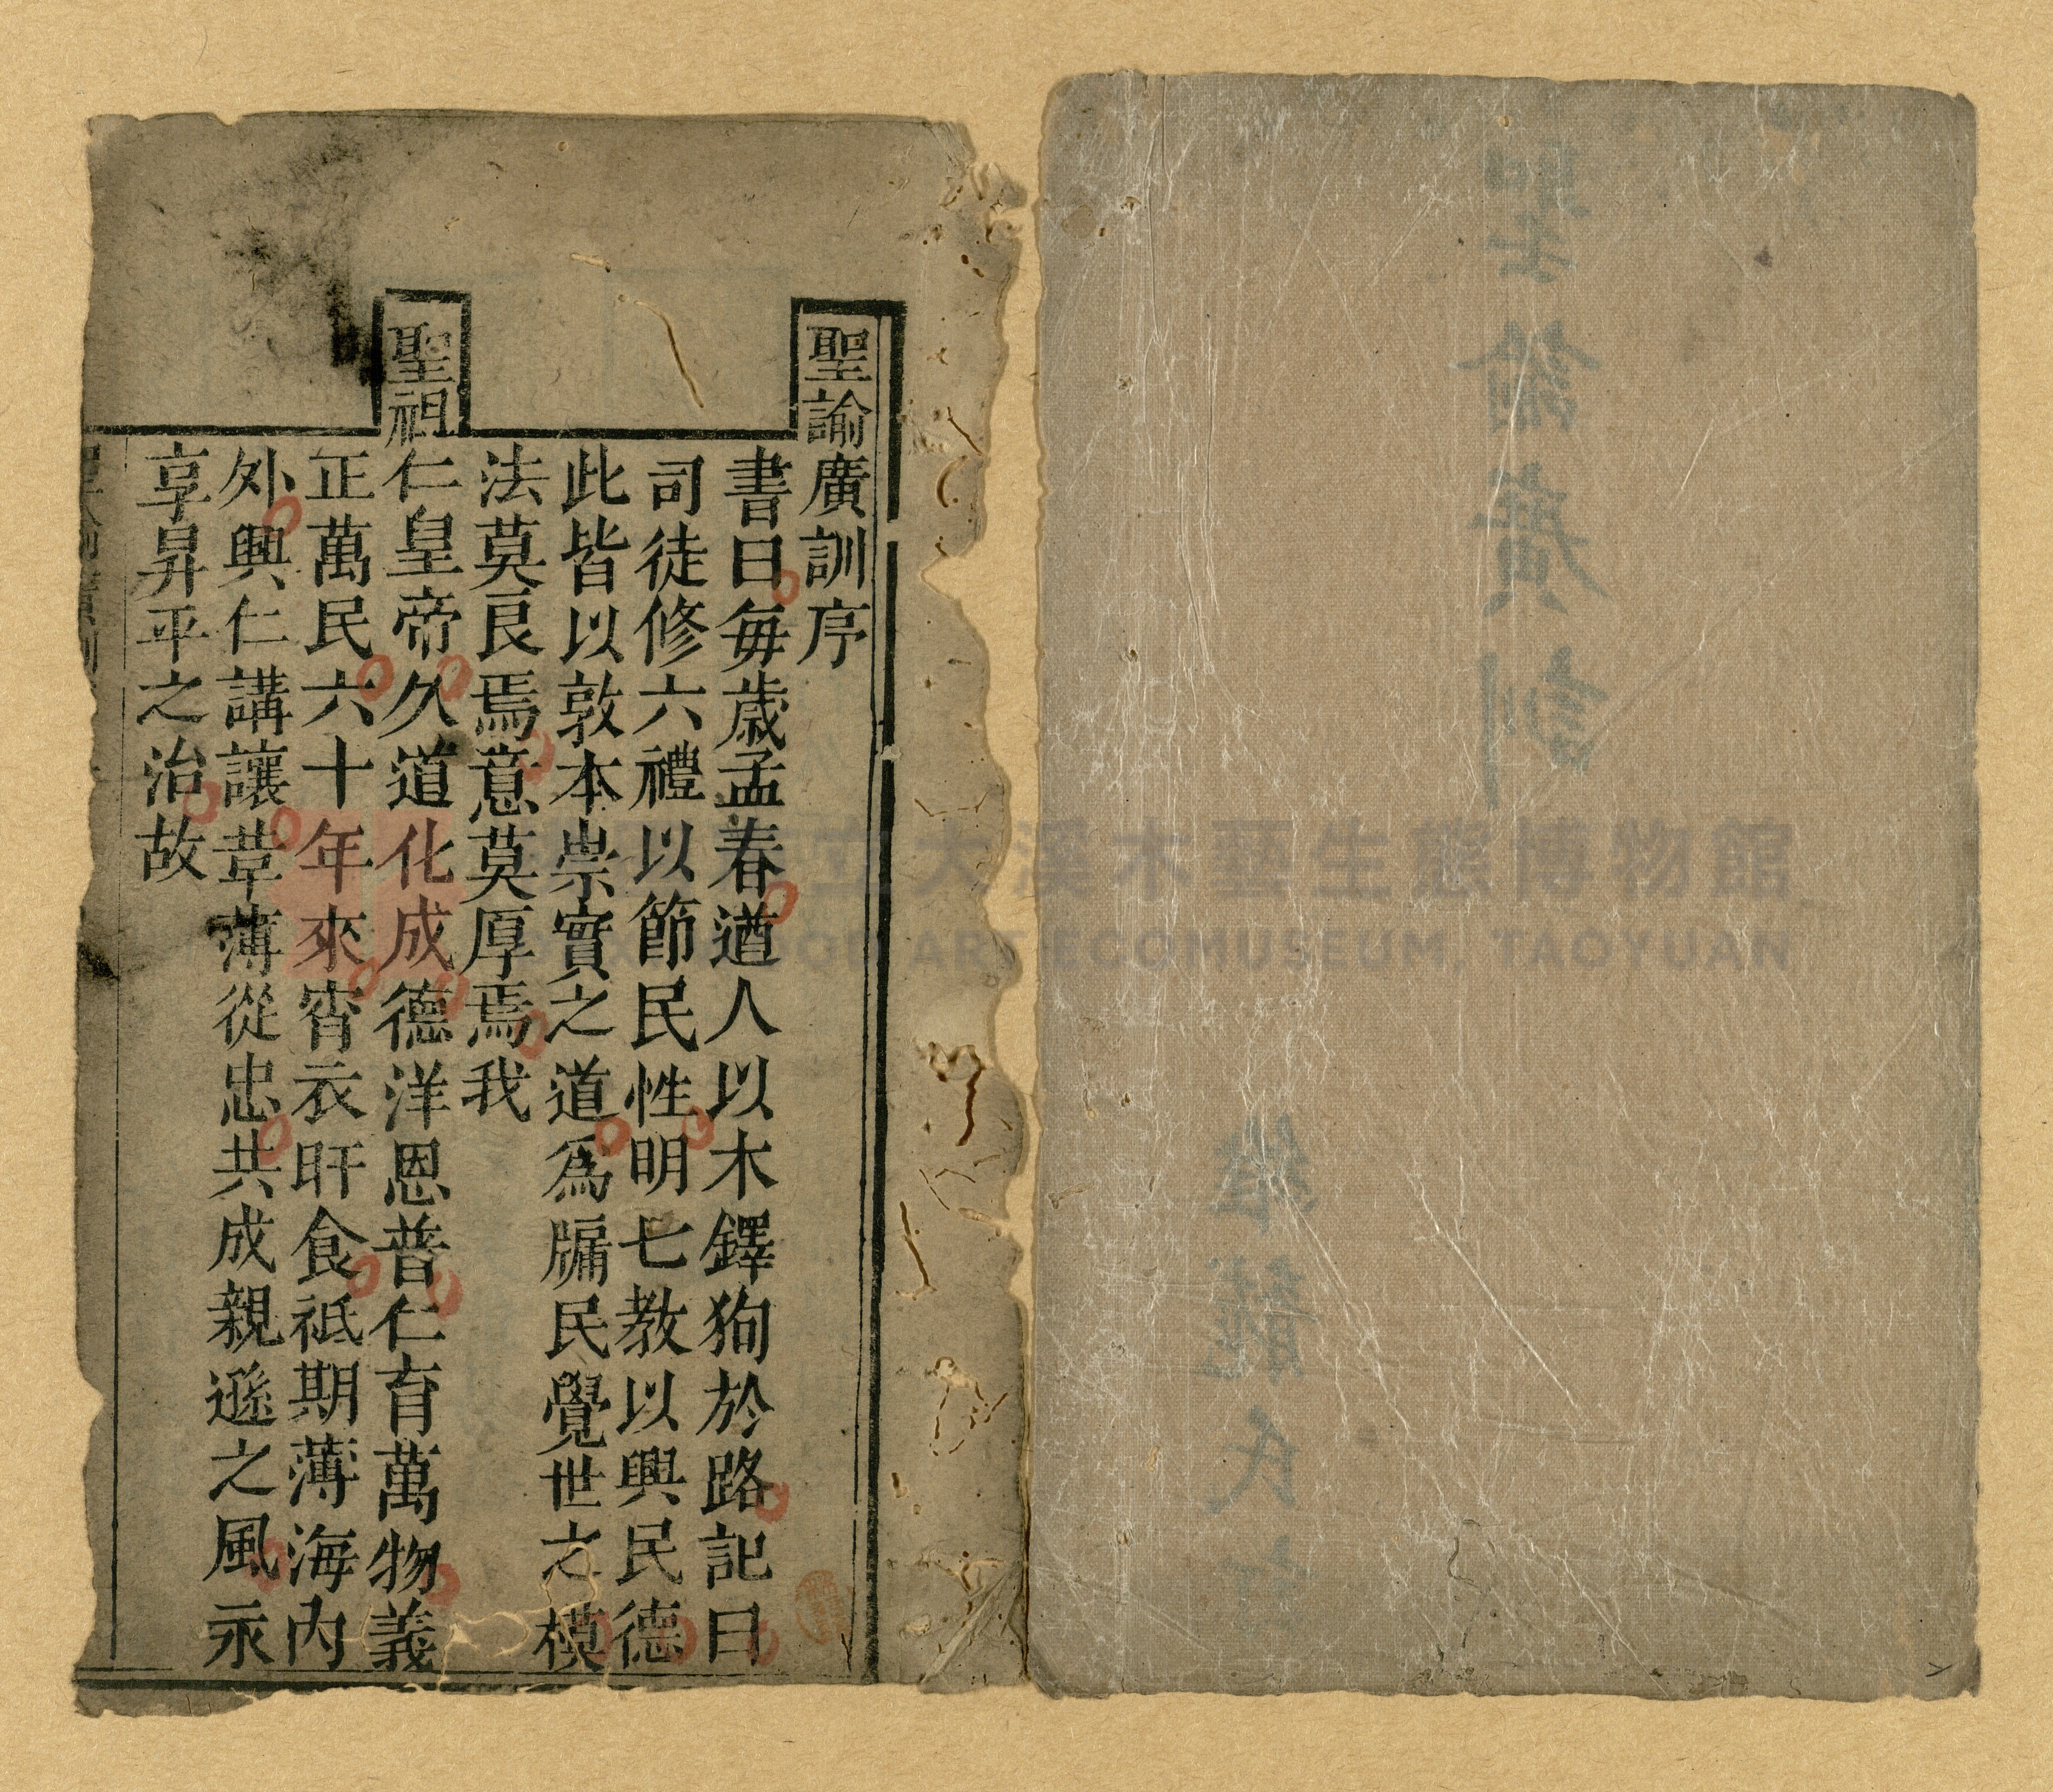 聖諭廣訓
維龍氏
聖諭廣訓序
書曰每歲孟春遒人以木鐸狥於路記曰
司徒修六禮以節民性明七教以興民德
此皆以敦本崇實之道爲牖民覺世之模
法莫良焉意莫厚焉我
聖祖仁皇帝久道化成德洋恩普仁育萬物義
正萬民六十年來宵衣旰食祗期薄海內
外興仁講讓革薄從忠共成親遜之風永
享昇平之治故
立大溪木藝生態博物館
ECOMUSEUM, TAOYUAN